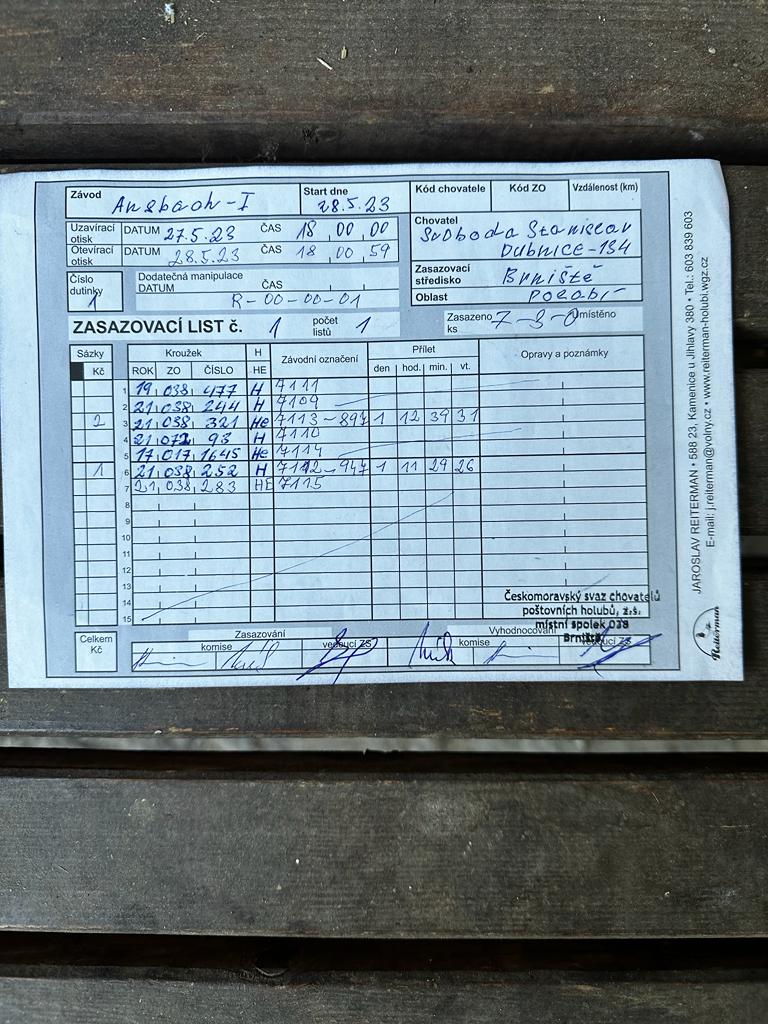 Závod Ansbach-I Start dne 28.5.23 Kód chovatele Kód ZO Vzdálenost (km)
Uzavírací otisk DATUM 27.5.23 ČAS 18 00 00
Otevírací otisk DATUM 28.5.23 ČAS 18 00 59
Chovatel Svoboda Stanislav
Dubnice-134
Číslo dutinky 1
Dodatečná manipulace
DATUM ČAS
R-00-00-01
Zasazovací středisko Brniště
Oblast
ZASAZOVACÍ LIST č. 1 počet listů 1
Zasazeno ks 7-3-0 Umístěno
Sázky Kroužek H Závodní označení Přílet Opravy a poznámky
Kč ROK ZO ČÍSLO HE den hod. min. vt.
1 19 038 477 H 7111
2 21 038 244 H 7109
2 3 21 038 321 He 7113-897 1 12 39 31
4 21 072 93 H 7110
5 17 017 1645 He 7114
1 6 21 038 252 H 7112-947 1 11 29 26
7 21 038 283 HE 7115
8
9
10
11
12
13
14
15
Českomoravský svaz chovatelů
poštovních holubů, z.s.
místní spolek 038
Brniště
Celkem Kč
Zasazování Vyhodnocování
komise vedoucí ZS vedoucí ZS
JAROSLAV REITERMAN • 588 23, Kamenice u Jihlavy 380 • Tel.: 603 839 603
E-mail: j.reiterman@volny.cz • www.reiterman-holubi.wgz.cz
Reiterman